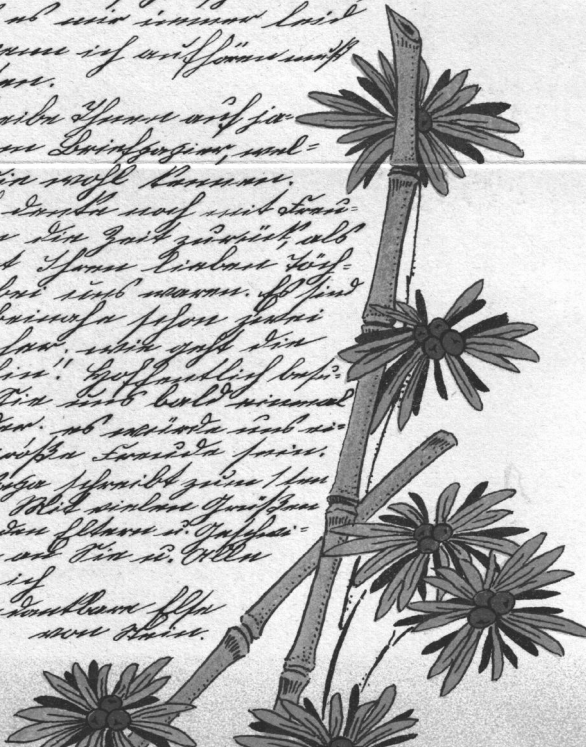 es mir immer leid
wenn ich aufhören muß
en.
eibe Ihnen auf ja-
m Briefpapier, wel-
ie wohl kennen.
denke noch mit Freu-
n die Zeit zurück, als
t Ihren lieben Töch-
bei uns waren. Es sind
beinahe schon zwei
her. wie geht die
hin!! Hoffentlich besu-
Sie uns bald einmal
er. es würde uns ei-
röße Freude sein.
schreibt zum 1ten
Mit vielen Grüßen
den Eltern u. Geschwi-
an Sie u. Alle
ich
dankbare Else
von Stein.